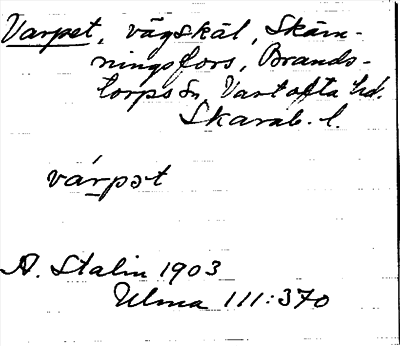 Varpet, vägskäl, Skäm-
ningsfors, Brands-
torps sn, Vartofta hd.
Skarab. l.
várpət
A. Stalin 1903
Ulma 111:370